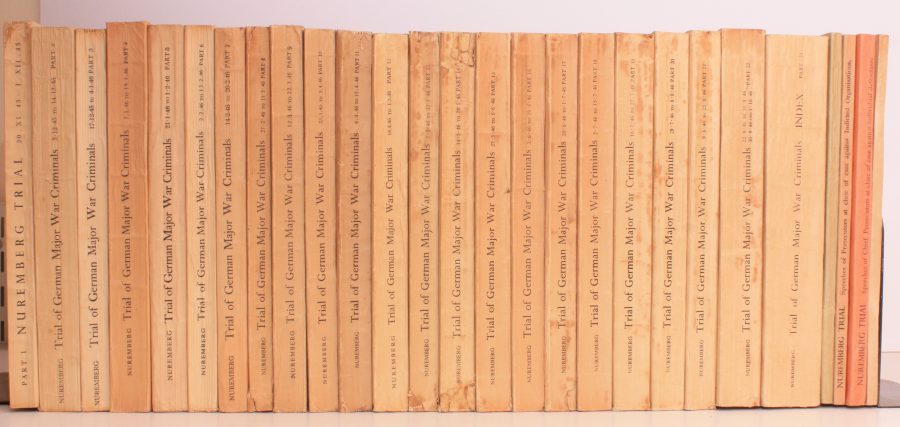 PART 1 NUREMBERG TRIAL 20 XI 45 - 1 XII 45
NUREMBERG Trial of German Major War Criminals PART 2
NUREMBERG Trial of German Major War Criminals 17-12-45 to 4-1-46 PART 3
NUREMBERG Trial of German Major War Criminals PART 4
NUREMBERG Trial of German Major War Criminals PART 5
NUREMBERG Trial of German Major War Criminals PART 6
NUREMBERG Trial of German Major War Criminals PART 7
NUREMBERG Trial of German Major War Criminals PART 8
NUREMBERG Trial of German Major War Criminals PART 9
NUREMBERG Trial of German Major War Criminals PART 10
NUREMBERG Trial of German Major War Criminals PART 11
NUREMBERG Trial of German Major War Criminals PART 12
NUREMBERG Trial of German Major War Criminals PART 13
NUREMBERG Trial of German Major War Criminals PART 14
NUREMBERG Trial of German Major War Criminals PART
NUREMBERG Trial of German Major War Criminals PART
NUREMBERG Trial of German Major War Criminals PART 17
NUREMBERG Trial of German Major War Criminals PART
NUREMBERG Trial of German Major War Criminals PART
NUREMBERG Trial of German Major War Criminals PART 20
NUREMBERG Trial of German Major War Criminals PART
NUREMBERG Trial of German Major War Criminals PART 22
NUREMBERG Trial of German Major War Criminals INDEX PART
NUREMBERG TRIAL Speeches of Prosecutors at close of case against Indicted Organisations.
NUREMBERG TRIAL Speeches of Chief Prosecutors at close of case against individual defendants.